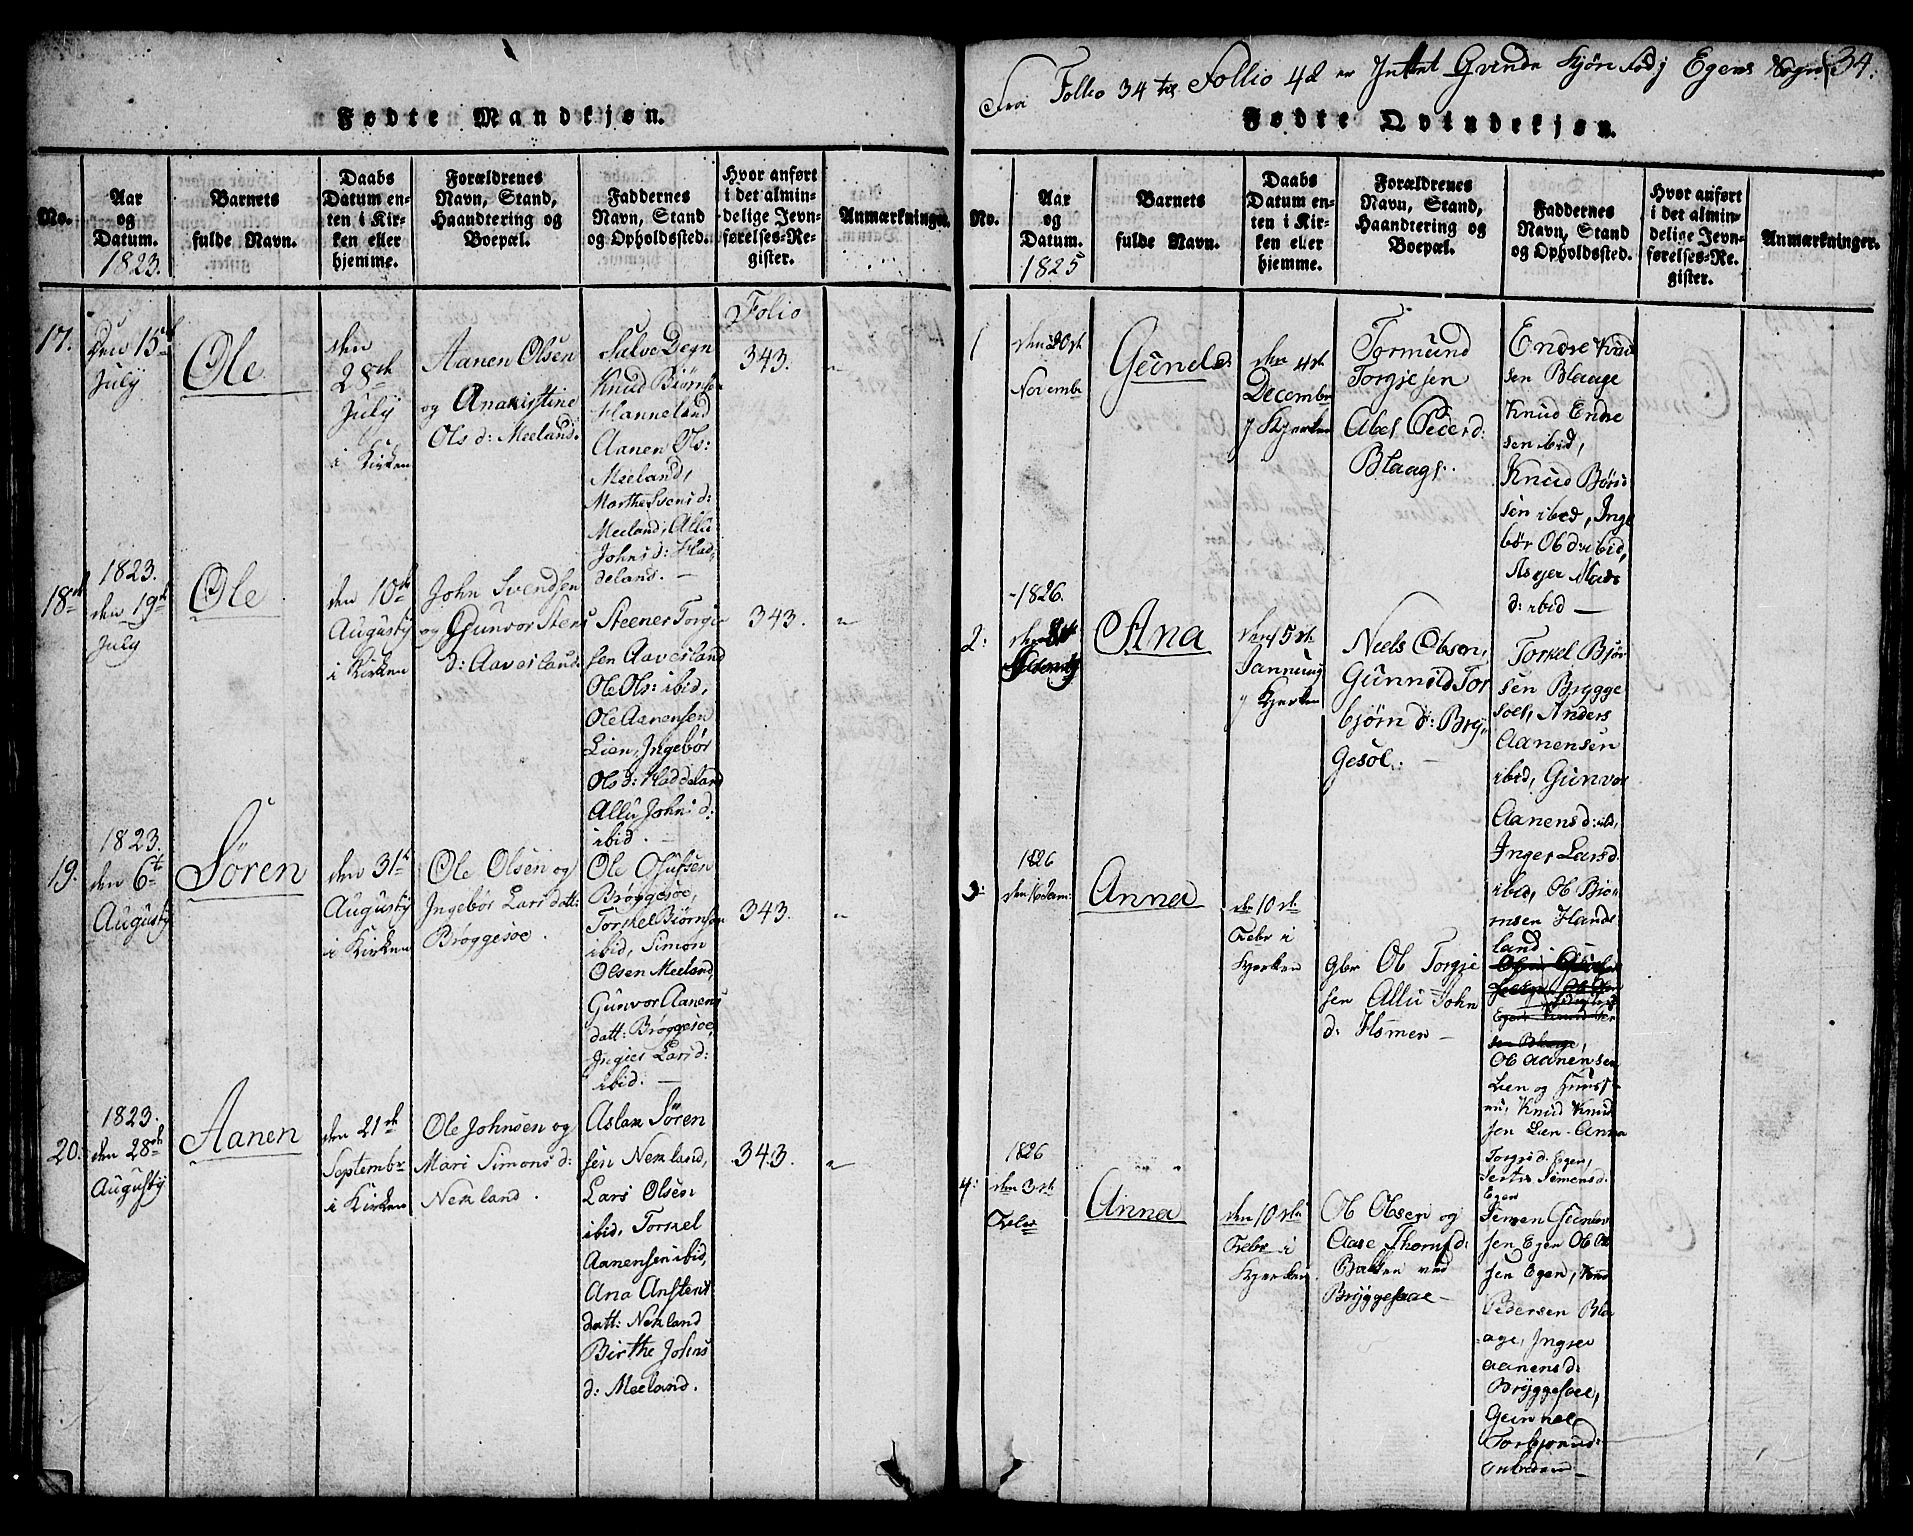 Fødte Mandkjøn.
No.
Aar
og
Datum.
1823.
Barnets
fulde Navn.
Daabs
Datum en-
ten i Kir-
ken eller
hjemme.
Forældrenes
Navn, Stand,
Haandtering og
Boepæl.
Faddernes
Navn, Stand
og Opholdssted.
Hvor anført
i det almin-
delige Jevn-
førelses-Re-
gister.
Anmærkninger.
17.
Den 15de
July
Ole
den
28de
July
i Kirken
Aanen Olsen
og Anakistine
Ols d: Meeland.
Salve Degn
Knud Biørnsen
Hanneland
Aanen Ols:
Meeland,
Marthe Svens d:
Meeland, Allu
Johns d: Had-
deland. —
Folio
343.
"
18de
1823.
den 19de
July
Ole
den 10de
Augusty
i Kirken
John Svendsen
og Gunvor Stens
d: Aavesland.
Steener Torgie
sen Aavesland
Ole Ols: ibid,
Ole Aanensen
Lien, Ingebør
Ols d: Haddeland
Allu Johns d:
ibid. —
343.
"
19.
1823.
den 6te
Augusty
Søren
den 31te
Augusty
i Kirken
Ole Olsen og
Ingebør Lars datt:
Brøggesoe.
Ole Olufsen
Brøggesoe,
Torkel Biørnsen
ibid, Simon
Olsen Meeland,
Gunvor Aanens
datt: Brøggesoe,
Ingier Lars d:
ibid. —
343.
"
20.
1823.
den 28de
Augusty
Aanen
den 21de
Septembr
i Kirken
Ole Johnsen og
Mari Simons d:
Nekland.
Aslak Søren
sen Nekland,
Lars Olsen
ibid, Torkel
Aanensen ibid,
Ana Anstens
datt: Nekland
Birthe Johns
d: Meeland.
Fra Follio 34 til Follio 42 er Inttet Qvinde Kjøn Fød j Egens Sogn
34.
Fødte Qvindekjøn.
No.
Aar
og
Datum.
1825
Barnets
fulde Navn.
Daabs
Datum en-
ten i Kir-
ken eller
hjemme.
Forældrenes
Navn, Stand,
Haandtering og
Boepæl.
Faddernes
Navn, Stand
og Opholdssted.
Hvor anført
i det almin-
delige Jevn-
førelses-Re-
gister.
Anmærkninger.
1
den 20de
Novembr
Gunele
den 4de
Decembr
j Kjerken
Tormund
Torgjesen
Abel Peder d:
Blaage.
Endre Knud
sen Blaage
Knud Endre
sen ibid,
Knud Børid
sen ibid, Inge
bør Ols d: ibid,
Asger Mads
d: ibid —
2:
1826.
Ana
den 15de
Januarij
j Kjerken
Niels Olsen,
Gunnild Tor
bjørn d: Bryg
gesøl. —
Torkel Bjør
sen Brygge
soel, Anders
Aanensen
ibid, Gunvor
Aanens d: ibd,
Inger Lars d.
ibid, Ole Bjor
nsen Hands
land
3:
1826
den 16 Jan:
Anna
den 10de
Febr i
Kjerken
Ole Torgje
sen Allu John
d: Homen —
Ole Aanensen
Lien og
Knud Knud
sen Lien. Anna
Torgis d. Egen,
Simens d.
Egen
4:
1826
den 3de
Febr
Anna
den 10de
Febr i
Kjerken.
Ole Olsen og
Aase Thoms d:
Bakken ved
Bryggesaae —
Simen Gunleu
sen Egen Ole Ol
sen Egen, Knud
Pedersen Bla
age, Ingier
Aanens d:
Bryggesaae,
Gunnele
Torbjørns d: